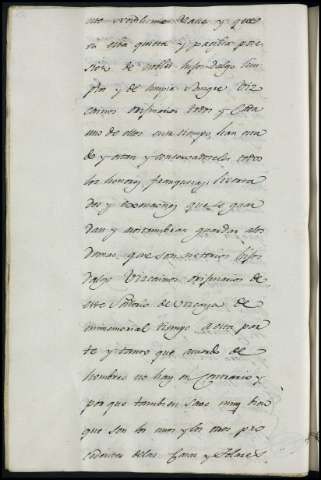 y que
en esta quieta y pacifica pose
sion de nobles hijosdalgo lim
pios y de limpia sangre Viz
cainos originarios todos y Cada
uno de ellos en su tiempo, han esta
do y estan y conservadoseles todos
los honores, franquezas, liverta
des y exempciones que se guar
dan y acostumbran guardar a los
demas, que son notorios hijos
dalgo Vizcainos originarios de
este Señorio de Vizcaya de
immemorial tiempo a esta par
te y tanto que memoria de
hombres no hay en Contrario y
por que tambien save
que son los unos y los otros pro
cedentes de las Casas y Solares